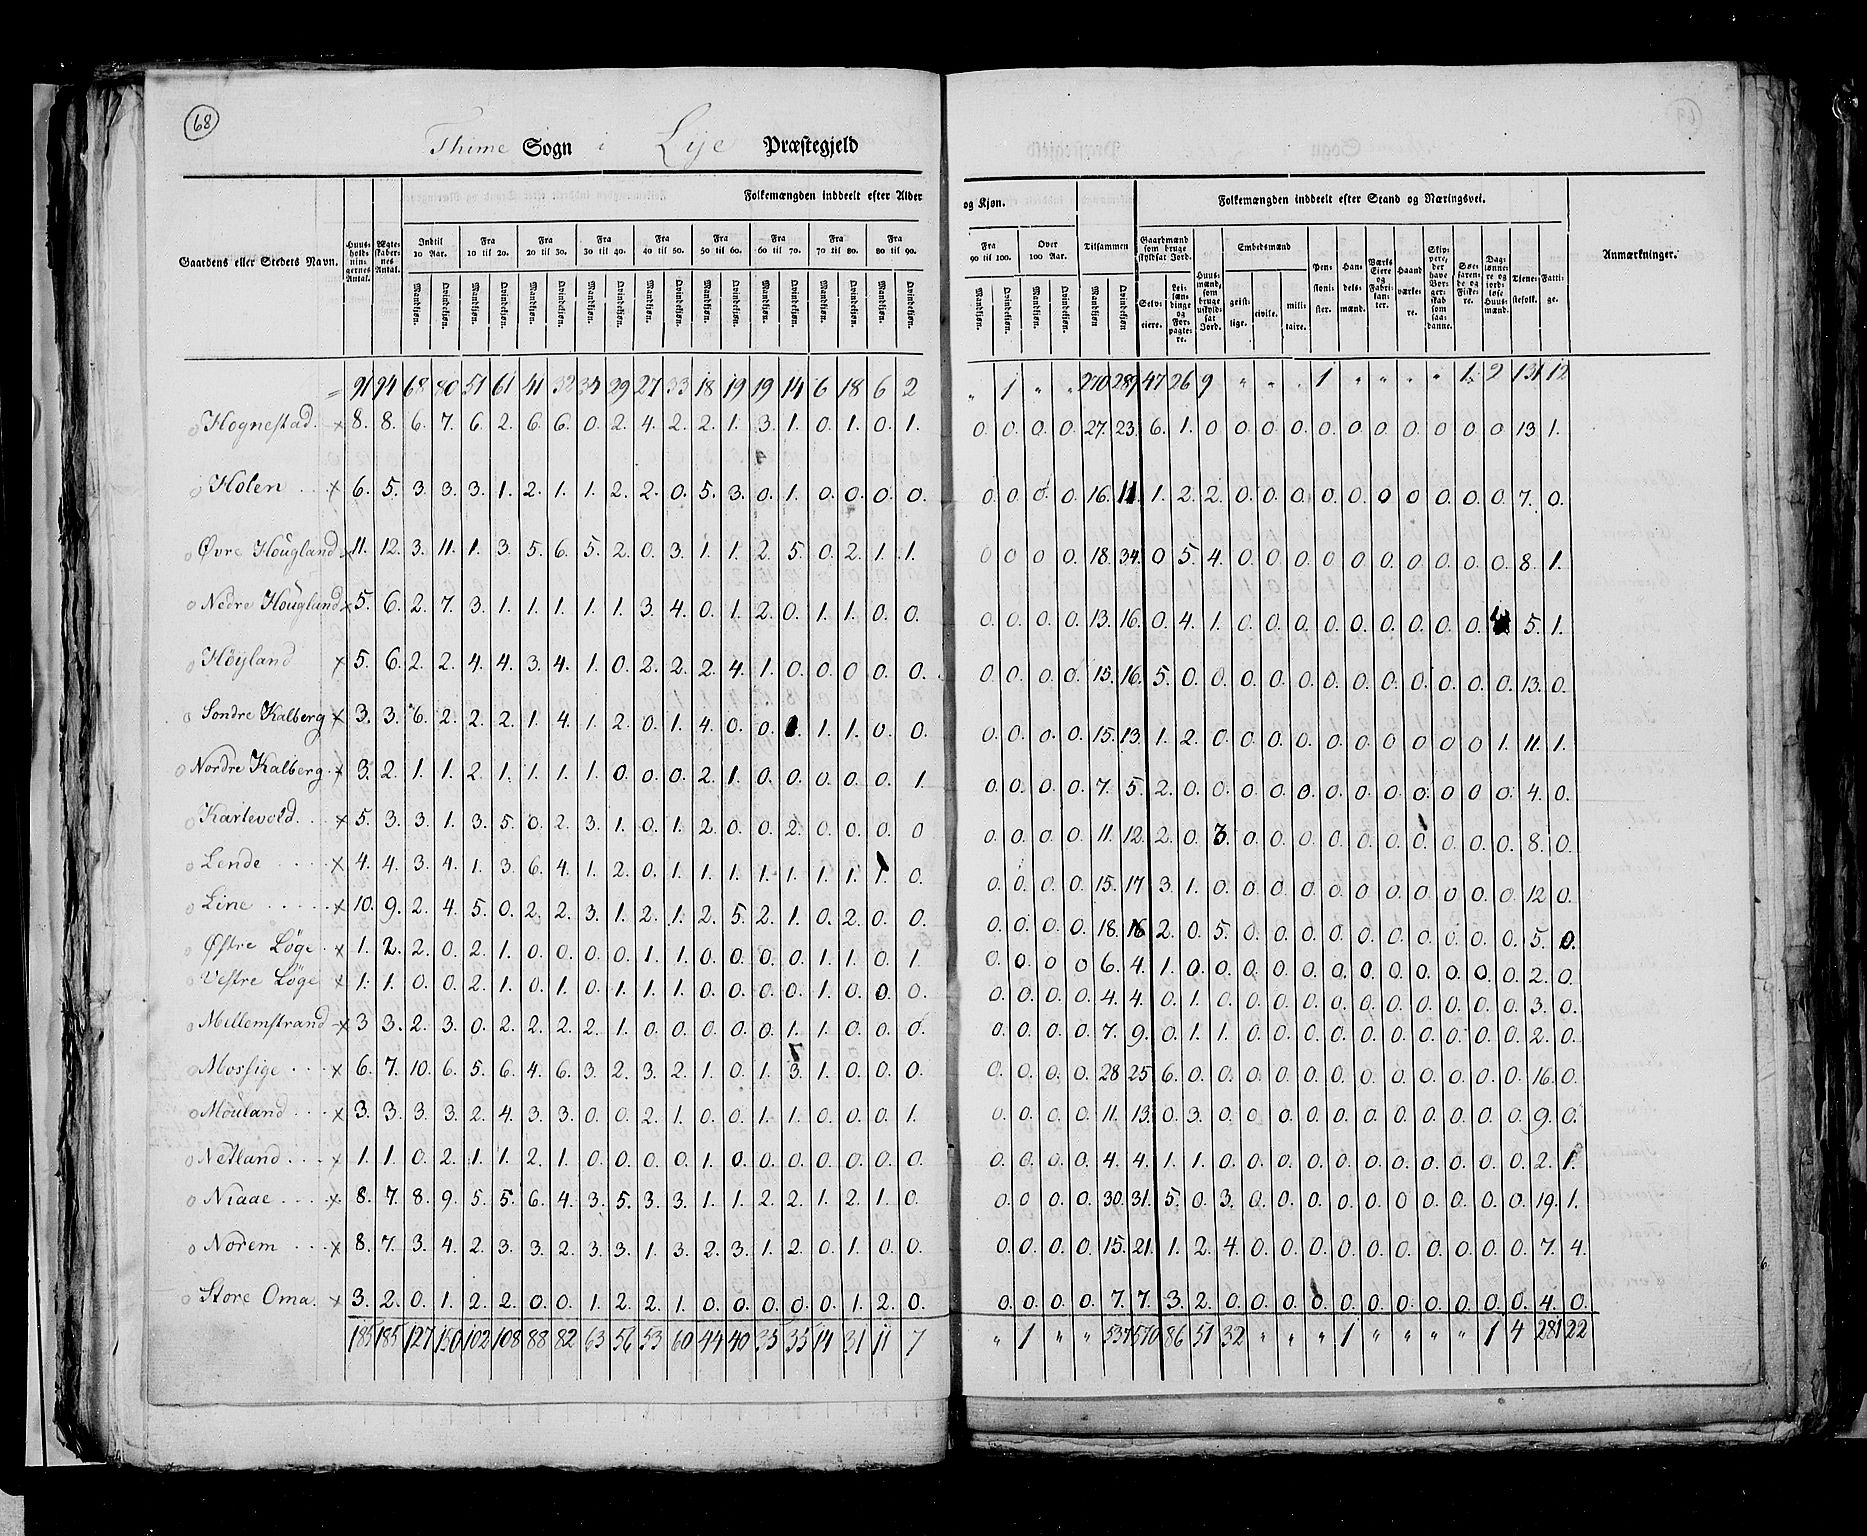 68
Thime Sogn i Lye Præstegjeld
Folkemængden inddeelt efter Alder og Kjøn. Folkemængden inddeelt efter Stand og Næringsvei.
Gaardens eller Stedets Navn. Huus-holdnin-gernes Antal. Ægte-skaber-nes Antal. Indtil 10 Aar. Fra 10 til 20. Fra 20 til 30. Fra 30 til 40. Fra 40 til 50. Fra 50 til 60. Fra 60 til 70. Fra 70 til 80. Fra 80 til 90. Fra 90 til 100. Over 100 Aar. Tilsammen Gaardmænd som bruge skyldsat Jord. Huus-mænd, som bruge uskyld-sat Jord. Embedsmænd Pen-sioni-ster. Han-dels-mænd. Værks Eiere og Fabri-kan-ter. Haand værke-re. Skip-pere, der have Bor-ger-skab som saa-danne. Søe-faren-de og Fiske-re. Dag-lønne-re og jord-løse Huus-mænd. Tiene-stefolk. Fatti-ge. Anmærkninger.
Mandkjøn. Qvindekjøn. Mandkjøn. Qvindekjøn. Mandkjøn. Qvindekjøn. Mandkjøn. Qvindekjøn. Mandkjøn. Qvindekjøn. Mandkjøn. Qvindekjøn. Mandkjøn. Qvindekjøn. Mandkjøn. Qvindekjøn. Mandkjøn. Qvindekjøn. Mandkjøn. Qvindekjøn. Mandkjøn. Qvindekjøn. Mandkjøn Qvindekjøn Selv-eiere. Lei-læn-dinge og For-pagte-re. geist-lige. civile. mili-taire.
= 91 94 68 80 51 61 41 32 34 29 27 33 18 19 19 14 6 18 6 2 " 1 " " 270 289 47 26 9 " " " 1 " " " " 1 2 131 12
Hognestad. x 8. 8. 6. 7. 6. 2. 6. 6. 0. 2. 4. 2. 2. 1. 3. 1. 0. 1. 0. 1. 0. 0. 0. 0. 27. 23. 6. 1. 0 0. 0. 0. 0. 0. 0. 0. 0 0 0 13 1.
Holen x 6. 5. 3. 3. 3. 1. 2. 1. 1. 2. 2. 0. 5. 3. 0. 1. 0. 0. 0. 0. 0. 0. 0. 0. 16. 11. 1. 2. 2. 0. 0. 0. 0. 0. 0 0 0. 0. 0. 7. 0.
Øvre Hougland x 11. 12. 3. 11. 1. 3. 5. 6. 5. 2. 0. 3. 1. 1. 2. 5. 0. 2. 1. 1. 0 0 0 0. 18. 34. 0 5. 4. 0. 0. 0 0 0. 0. 0. 0. 0. 0. 8. 1.
Nedre Hougland x 5. 6. 2. 7. 3. 1. 1. 1. 1. 1. 3. 4. 0. 1. 2. 0. 1. 1. 0. 0. 0. 0. 0. 0. 13. 16. 0. 4. 1. 0. 0. 0. 0. 0. 0. 0. 0. 0. 5. 1.
Höyland x 5. 6. 2. 2. 4. 4. 3. 4. 1. 0. 2. 2. 2. 4. 1. 0. 0. 0. 0. 0. 0. 0. 0. 0. 15. 16. 5. 0. 0. 0. 0. 0. 0. 0. 0. 0. 0. 0. 0. 13. 0.
Söndre Kalberg x 3. 3. 6. 2. 2. 2. 1. 4. 1. 2. 0. 1. 4. 0. 0. 1. 1. 1. 0. 0. 0. 0. 0. 0. 15. 13. 1. 2. 0. 0. 0. 0. 0. 0. 0. 0. 0 0 1. 11. 1.
Nordre Kalberg. x 3. 2. 1. 1. 2. 1. 1. 1. 1. 0. 0. 0. 2. 1. 0. 0. 0. 0. 0. 1. 0. 0. 0. 0. 7. 5. 2. 0. 0. 0. 0. 0. 0. 0. 0. 0. 0 0 0. 4. 0.
Karlevold. x 5. 3. 3. 1. 3. 5. 0. 2. 3. 1. 0. 1. 2. 0. 0. 2. 0. 0. 0. 0 0. 0. 0. 0. 11. 12. 2. 0. 3. 0. 0. 0. 0. 0. 0. 0. 0. 0. 0. 8. 0.
Lende x 4. 4. 3. 4. 1. 3. 6. 4. 1. 2. 0. 1. 1. 1. 1. 1. 1. 1. 1. 0. 0. 0. 0. 0. 15. 17 3. 1. 0. 0. 0. 0. 0. 0. 0. 0. 0. 0. 0. 12 0.
Line x 10. 9. 2. 4. 5. 0. 2. 2. 3. 1. 2. 1. 2. 5. 2. 1. 0. 2. 0. 0. 0. 0. 0. 0. 18. 16 2. 0. 5. 0. 0. 0. 0. 0. 0. 0. 0. 0. 0. 5. 0.
Østre Löge x 1. 2. 2. 0. 2. 1. 0. 0. 0. 0. 1. 1. 0. 0. 0. 0. 1. 1. 0. 1. 0. 0. 0 0 6. 4. 1. 0. 0. 0. 0. 0. 0. 0. 0. 0. 0. 0. 0. 2. 0.
Vestre Löge x 1. 1. 0. 0. 2. 1. 0. 1. 0. 1. 1. 1. 0. 0. 0. 0. 1. 0. 0. 0. 0. 0. 0. 0. 4. 4. 0. 1. 0. 0. 0. 0. 0. 0. 0. 0. 0. 0. 0. 3. 0.
Mellemstrand x 3 3. 2. 3. 0. 2. 2. 2. 2. 1. 0. 0. 0. 0. 0. 1. 1. 0. 0. 0. 0. 0. 0. 0. 7. 9. 0. 1. 1. 0. 0. 0. 0. 0. 0. 0. 0. 0. 0. 2. 0.
Mossige x 6. 7. 10. 6. 5. 6. 4. 6. 3. 2. 3. 2. 1. 0. 1. 3. 1. 0. 0. 0. 0. 0. 0. 0. 28 25 6. 0. 0. 0. 0. 0. 0. 0. 0. 0. 0. 0. 0. 16. 0.
Mouland x 3. 3. 3. 3. 2. 4. 3. 3. 0. 0. 2. 1. 0. 0. 1. 1. 0. 0. 0. 1. 0. 0. 0. 0. 11. 13. 0. 3. 0. 0. 0. 0. 0. 0. 0. 0. 0. 0. 0. 9. 0.
Netland x 1. 1. 0. 2. 1. 1. 2. 1. 0. 0. 0. 0. 1. 0. 0. 0. 0. 0. 0. 0. 0. 0. 0. 0. 4. 4. 1. 1. 0. 0. 0. 0. 0. 0. 0. 0. 0. 0. 0. 2. 1.
Niaae x 8. 7. 8. 9. 5. 5. 6. 4. 3. 5. 3. 3. 1. 1. 2. 2. 1. 2. 1. 0. 0. 0. 0. 0. 30. 31. 5. 0. 3. 0. 0. 0. 0. 0. 0. 0. 0. 0. 0. 19. 1.
Norem x 8. 7. 3. 4. 2. 3. 3. 2. 3. 3. 1. 3. 2. 3. 1. 2. 0. 1. 0. 0. 0. 0. 0. 0. 15. 21. 1. 2. 4. 0. 0. 0. 0. 0. 0. 0. 0. 0. 0. 7. 4.
Store Oma. x 3. 2. 0. 1. 2. 2. 0. 0. 1. 2. 2. 1. 0. 0. 0. 0. 0. 1. 2. 0. 0. 0. 0. 0. 7. 7. 3. 2. 0. 0. 0. 0. 0. 0. 0. 0. 0. 0. 0. 4. 0.
185 185 127 150 102 108 88 82 63 56 53 60 44 40 35 35 14 31 11 7 " 1 " " 537 570 86 51 32 " " " 1 " " " " 1 4 281 22